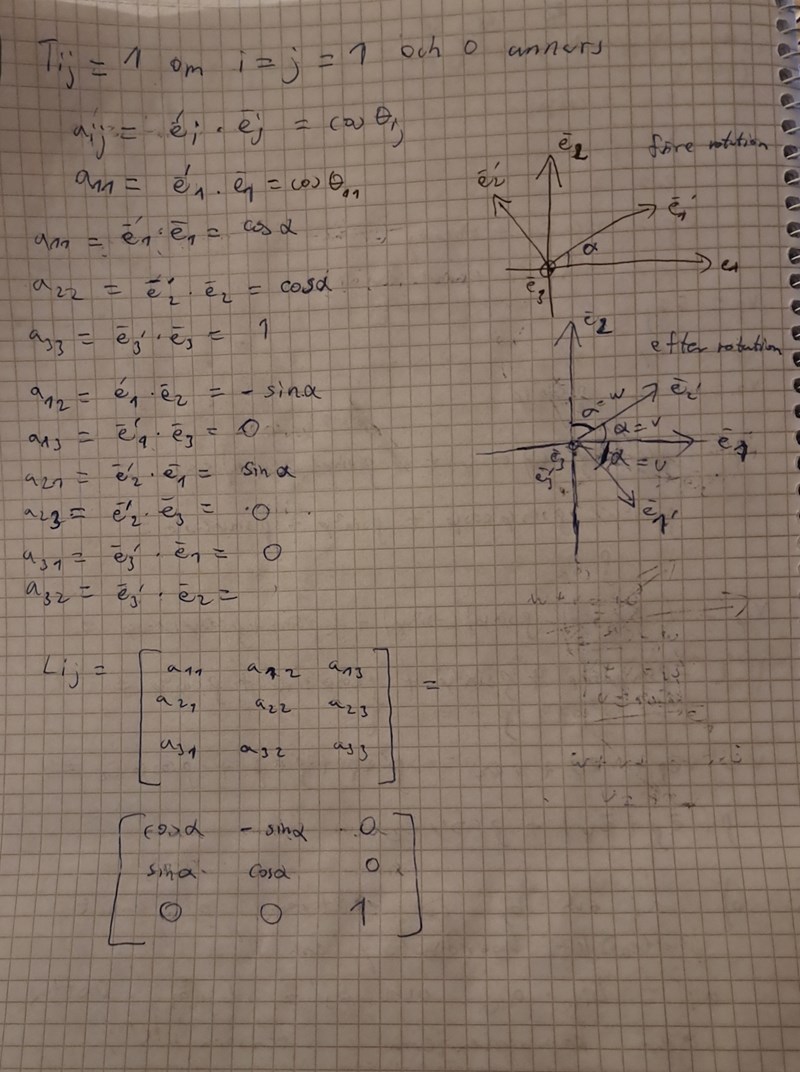 Tij = 1 om i = j = 1 och 0 anners
aij = é'i · ēj = cos θij
a11 = ē'1 · ē1 = cos θ11
a11 = ē'1 · ē1 = cos α
a22 = ē'2 · ē2 = cos α
a33 = ē3' · ē3 = 1
a12 = é1 · ē2 = - sin α
a13 = ē'1 · ē3 = 0
a21 = ē'2 · ē1 = sin α
a23 = ē'2 · ē3 = 0
a31 = ē3' · ē1 = 0
a32 = ē3' · ē2 =
Lij = [ a11 a12 a13 ] =
a21 a22 a23
a31 a32 a33
[ cos α - sin α 0 ]
sin α cos α 0
0 0 1
ē2 före rotation
ē2'
ē1'
α
e1
ē3
ē2
efter rotation
ē2'
α = v
ē1
α = v
ē3
ē3'
ē1'